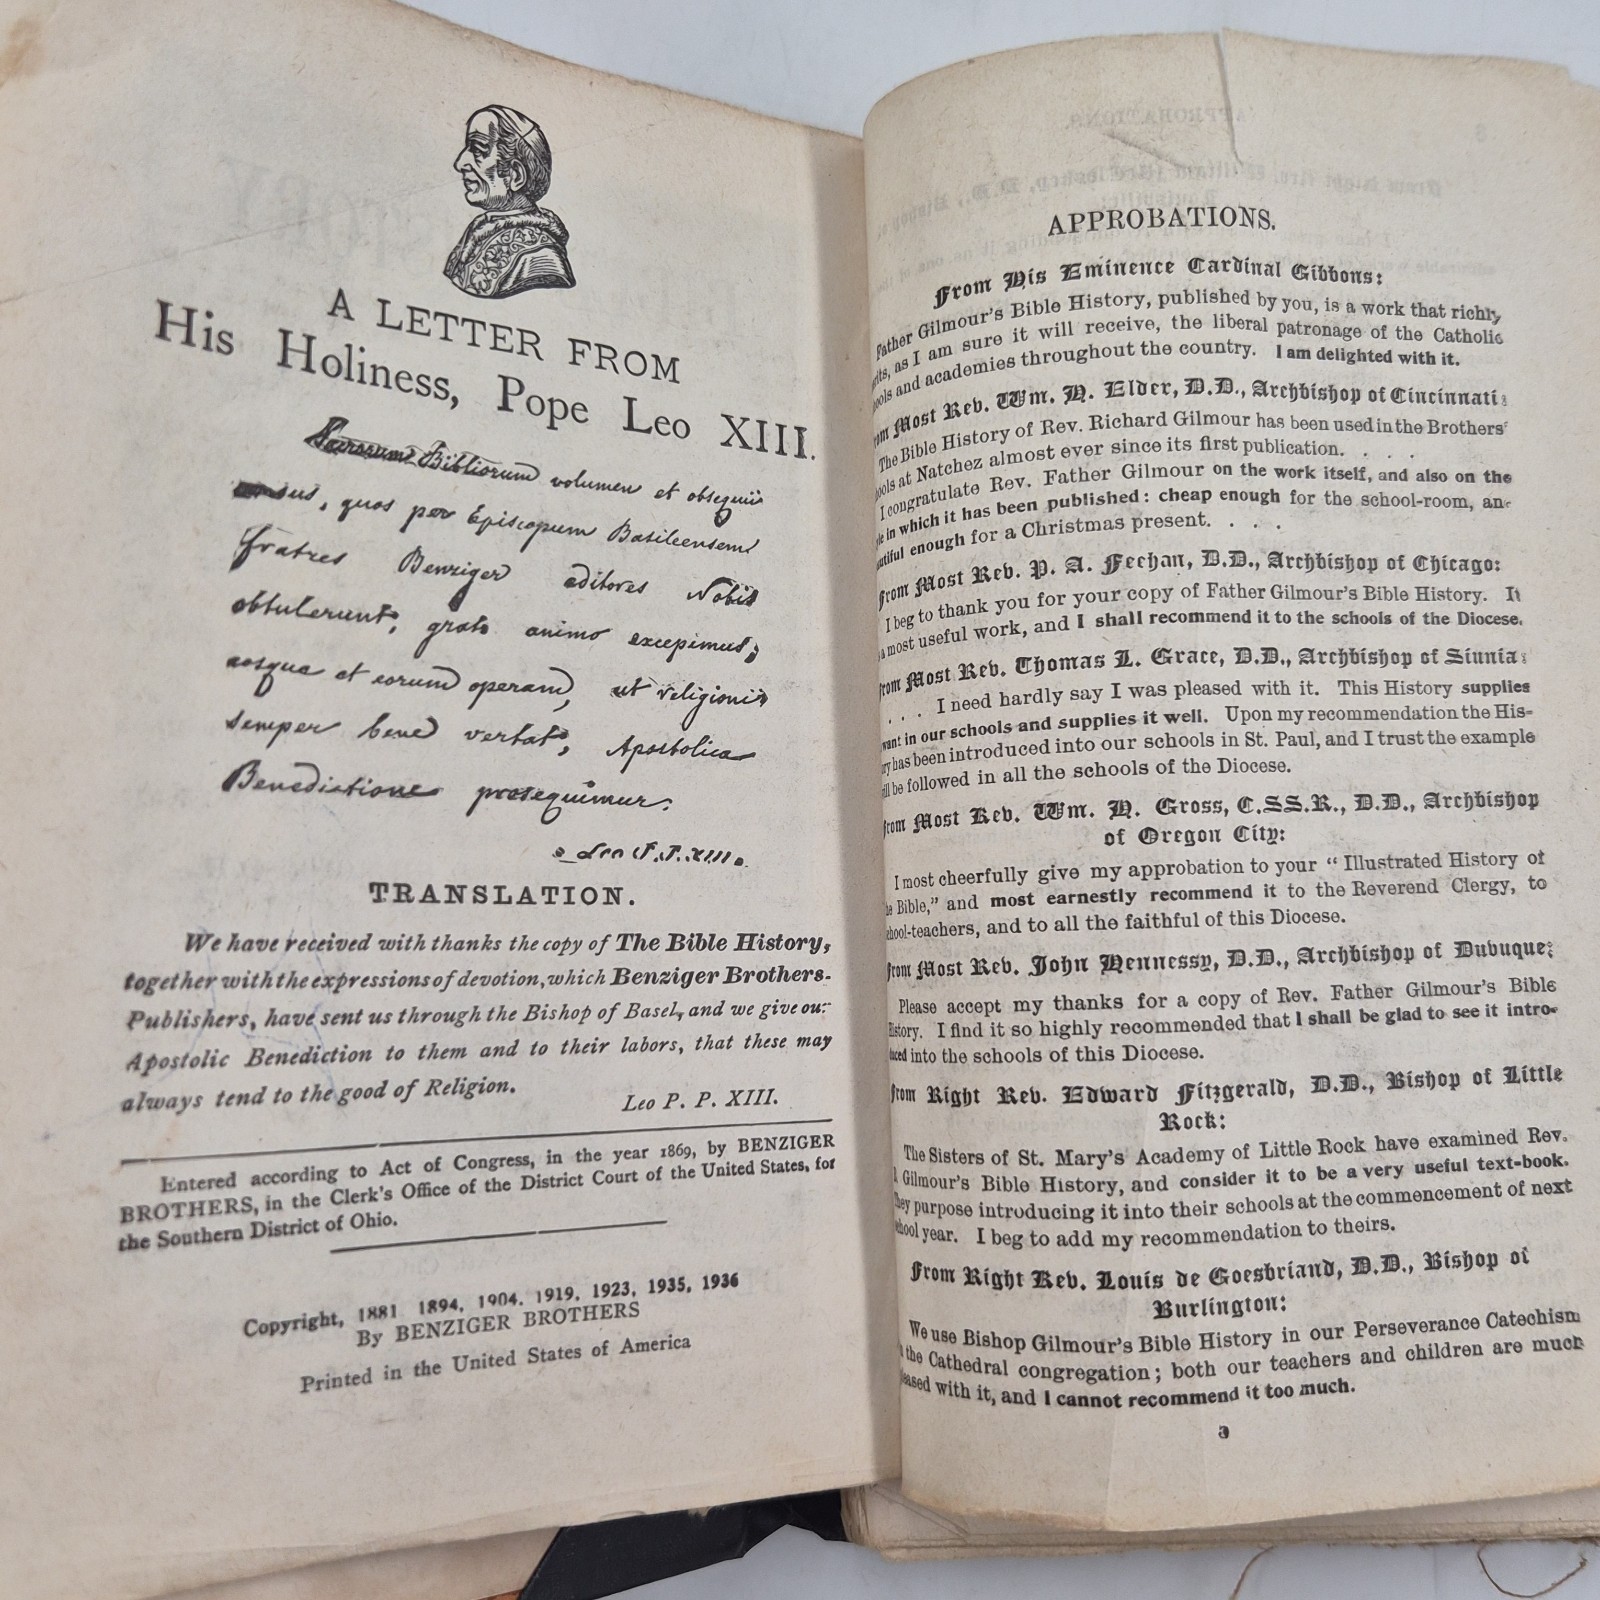 A LETTER FROM
His Holiness, Pope Leo XIII.
Sacrorum Bibliorum volumen et obsequii
sus, quos per Episcopum Basileensem
fratres Benziger editores Nobis
obtulerunt, grato animo excepimus;
eosque et eorum operam, ut religioni
semper bene vertat, Apostolica
Benedictione prosequimur.
Leo P. P. XIII.
TRANSLATION.
We have received with thanks the copy of The Bible History,
together with the expressions of devotion, which Benziger Brothers.
Publishers, have sent us through the Bishop of Basel, and we give our
Apostolic Benediction to them and to their labors, that these may
always tend to the good of Religion.
Leo P. P. XIII.
Entered according to Act of Congress, in the year 1869, by BENZIGER
BROTHERS, in the Clerk's Office of the District Court of the United States, for
the Southern District of Ohio.
Copyright, 1881 1894, 1904. 1919. 1923, 1935, 1936
By BENZIGER BROTHERS
Printed in the United States of America
APPROBATIONS.
From His Eminence Cardinal Gibbons:
Father Gilmour's Bible History, published by you, is a work that richly
rits, as I am sure it will receive, the liberal patronage of the Catholic
ools and academies throughout the country. I am delighted with it.
om Most Rev. Wm. H. Elder, D.D., Archbishop of Cincinnati:
The Bible History of Rev. Richard Gilmour has been used in the Brothers'
ools at Natchez almost ever since its first publication. . . .
I congratulate Rev. Father Gilmour on the work itself, and also on the
le in which it has been published: cheap enough for the school-room, an
utiful enough for a Christmas present. . . .
From Most Rev. P. A. Feehan, D.D., Archbishop of Chicago:
I beg to thank you for your copy of Father Gilmour's Bible History. It
a most useful work, and I shall recommend it to the schools of the Diocese.
rom Most Rev. Thomas L. Grace, D.D., Archbishop of Siunia:
. . . I need hardly say I was pleased with it. This History supplies
want in our schools and supplies it well. Upon my recommendation the His-
ry has been introduced into our schools in St. Paul, and I trust the example
ill be followed in all the schools of the Diocese.
From Most Rev. Wm. H. Gross, C.SS.R., D.D., Archbishop
of Oregon City:
I most cheerfully give my approbation to your "Illustrated History of
he Bible," and most earnestly recommend it to the Reverend Clergy, to
chool-teachers, and to all the faithful of this Diocese.
From Most Rev. John Hennessy, D.D., Archbishop of Dubuque:
Please accept my thanks for a copy of Rev. Father Gilmour's Bible
History. I find it so highly recommended that I shall be glad to see it intro-
duced into the schools of this Diocese.
From Right Rev. Edward Fitzgerald, D.D., Bishop of Little
Rock:
The Sisters of St. Mary's Academy of Little Rock have examined Rev.
Gilmour's Bible History, and consider it to be a very useful text-book.
They purpose introducing it into their schools at the commencement of next
chool year. I beg to add my recommendation to theirs.
From Right Rev. Louis de Goesbriand, D.D., Bishop of
Burlington:
We use Bishop Gilmour's Bible History in our Perseverance Catechism
the Cathedral congregation; both our teachers and children are much
eased with it, and I cannot recommend it too much.
a